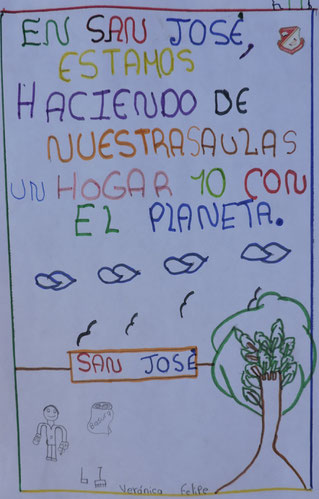 EN SAN JOSÉ,
ESTAMOS
HACIENDO DE
NUESTRAS AULAS
UN HOGAR 10 CON
EL PLANETA.
SAN JOSÉ
Verónica Felipe